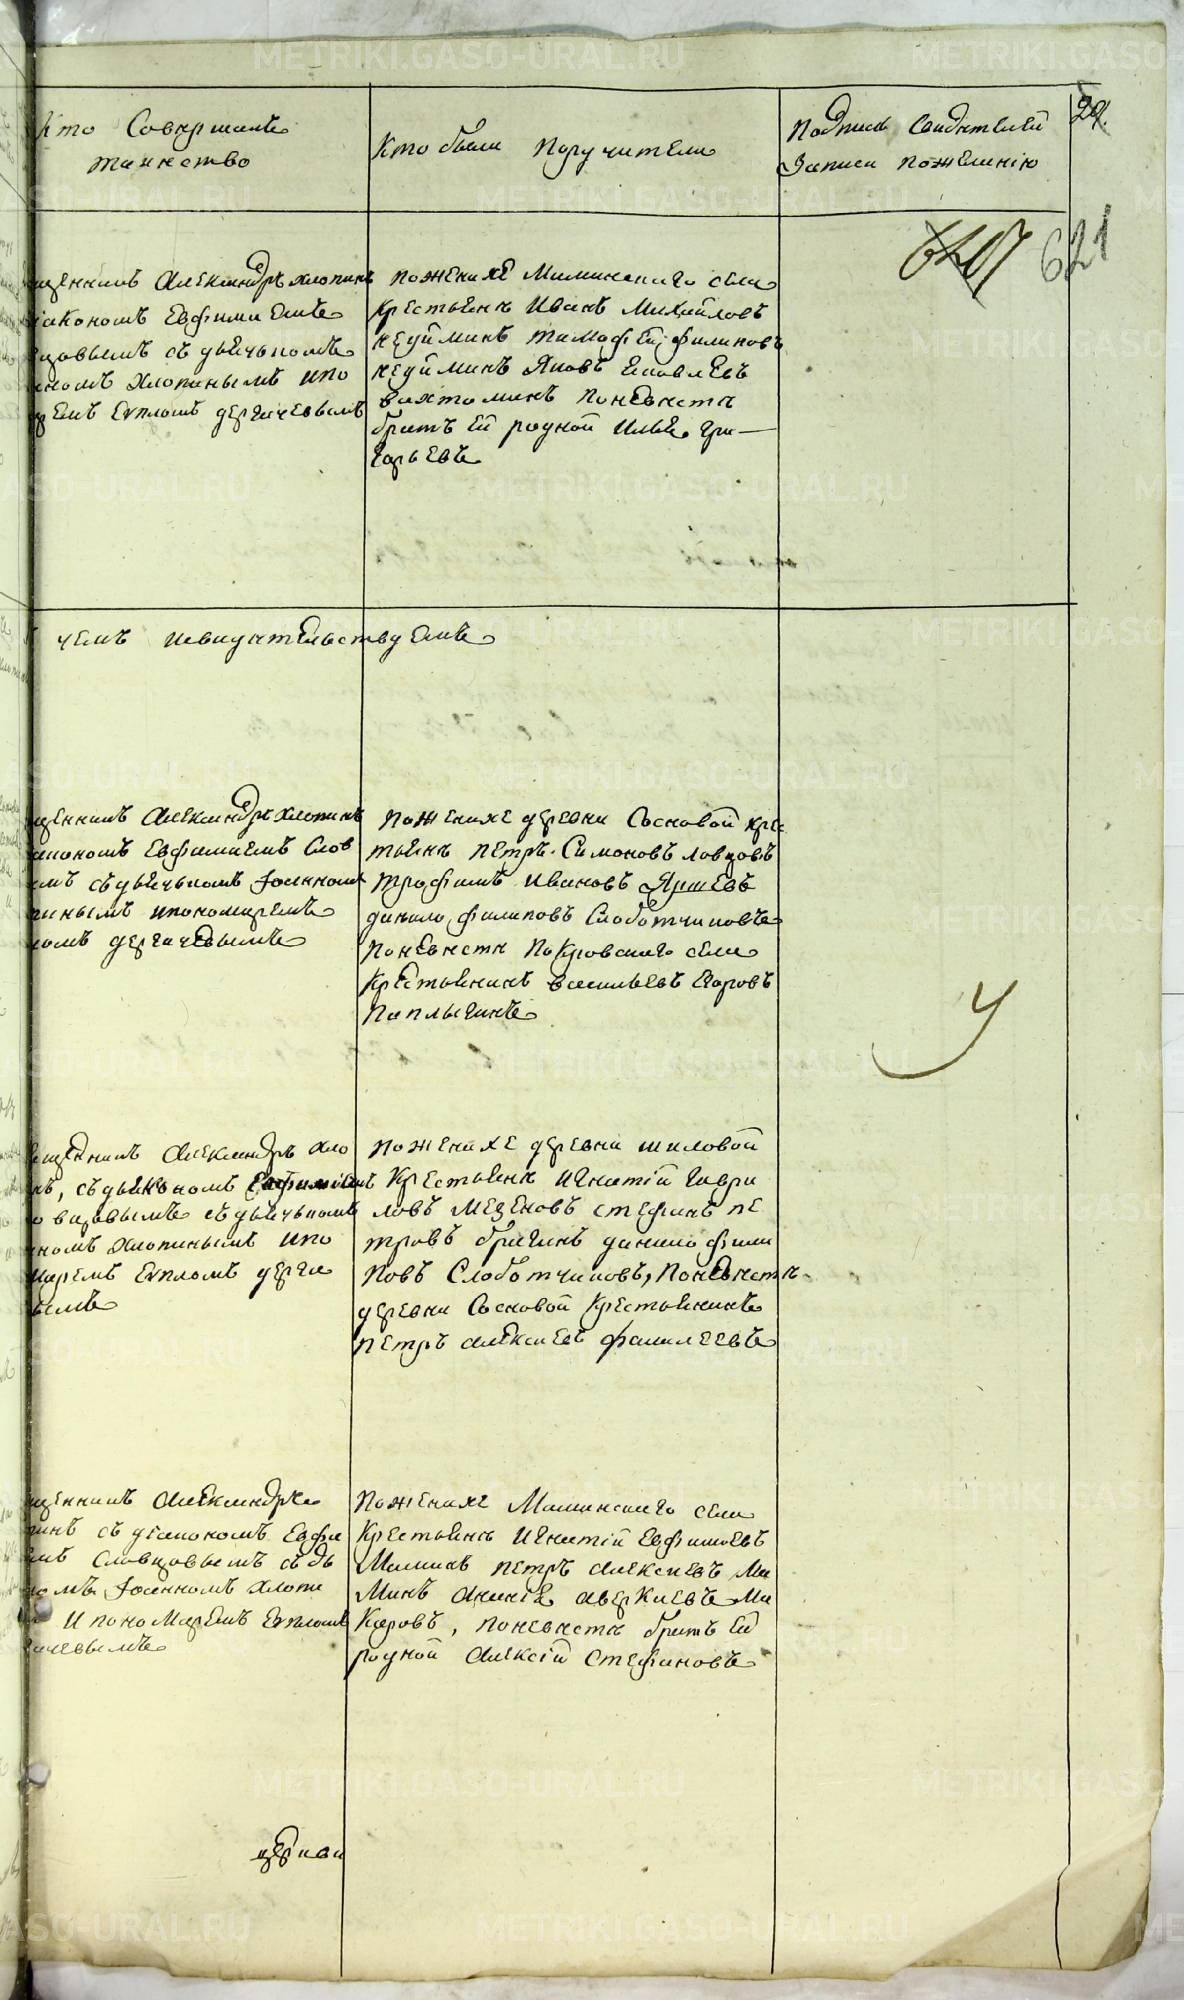 Кто Совершалъ
таинство
Кто были Поручители
Подписъ Свидѣтелей
Записи пожеланію
621
щенникъ Александръ хлопинъ
іакономъ Евфимиемъ
вцовымъ съ дьячькомъ
нномъ хлопинымъ ипо
ремъ Еѵпломъ дергачевымъ
пожених­е Маминскаго села
крестьянѣ Иванъ Михайловъ
кеуйминъ тимофей филиповъ
кеуйминъ Яковъ Яковлевъ
вахтоминъ поневѣстѣ
братъ ей родной Илья гри
горьевъ
чемъ исвидѣтельствуемъ
щенникъ Александръ хлопинъ
иакономъ Евфимиемъ Слов
мъ съ дьячькомъ Іоанномъ
инымъ ипономаремъ
ломъ дергачевымъ
пожених­е деревни Сосновой кре
тьянѣ петръ Симоновъ ловцовъ
трофимъ Ивановъ Яршевъ
данило филиповъ Слоботчиковъ
поневѣстѣ покровскаго села
крестьянинъ васильевъ Егоровъ
паплыгинъ
щенникъ Александръ хло
нъ, съ дьякономъ Евфиміемъ
овцовымъ съ дьячькомъ
нномъ хлопинымъ ипо
маремъ Еѵпломъ дерга
вымъ
пожених­е деревни шиловой
крестьянѣ Игнатій гаври
ловъ Мезеновъ стефанъ пе
тровъ брагинъ данило фили
повъ Слоботчиковъ, поневѣстѣ
деревни Сосновой крестьянинъ
петръ алексиевъ фамилеевъ
щенникъ Александръ
пинъ съ діакономъ Евфи
мъ Словцовымъ съ дь
комъ Іоанномъ хлопи
И пономаремъ Еѵпломъ
гачевымъ
пожених­е Маминскаго села
крестьянѣ Игнатій Евфимовъ
Маминъ петръ алексиевъ Ма
минъ Ананія аверкиевъ Ма
каровъ, поневѣстѣ братъ ей
родной Алексій Стефановъ
церкви